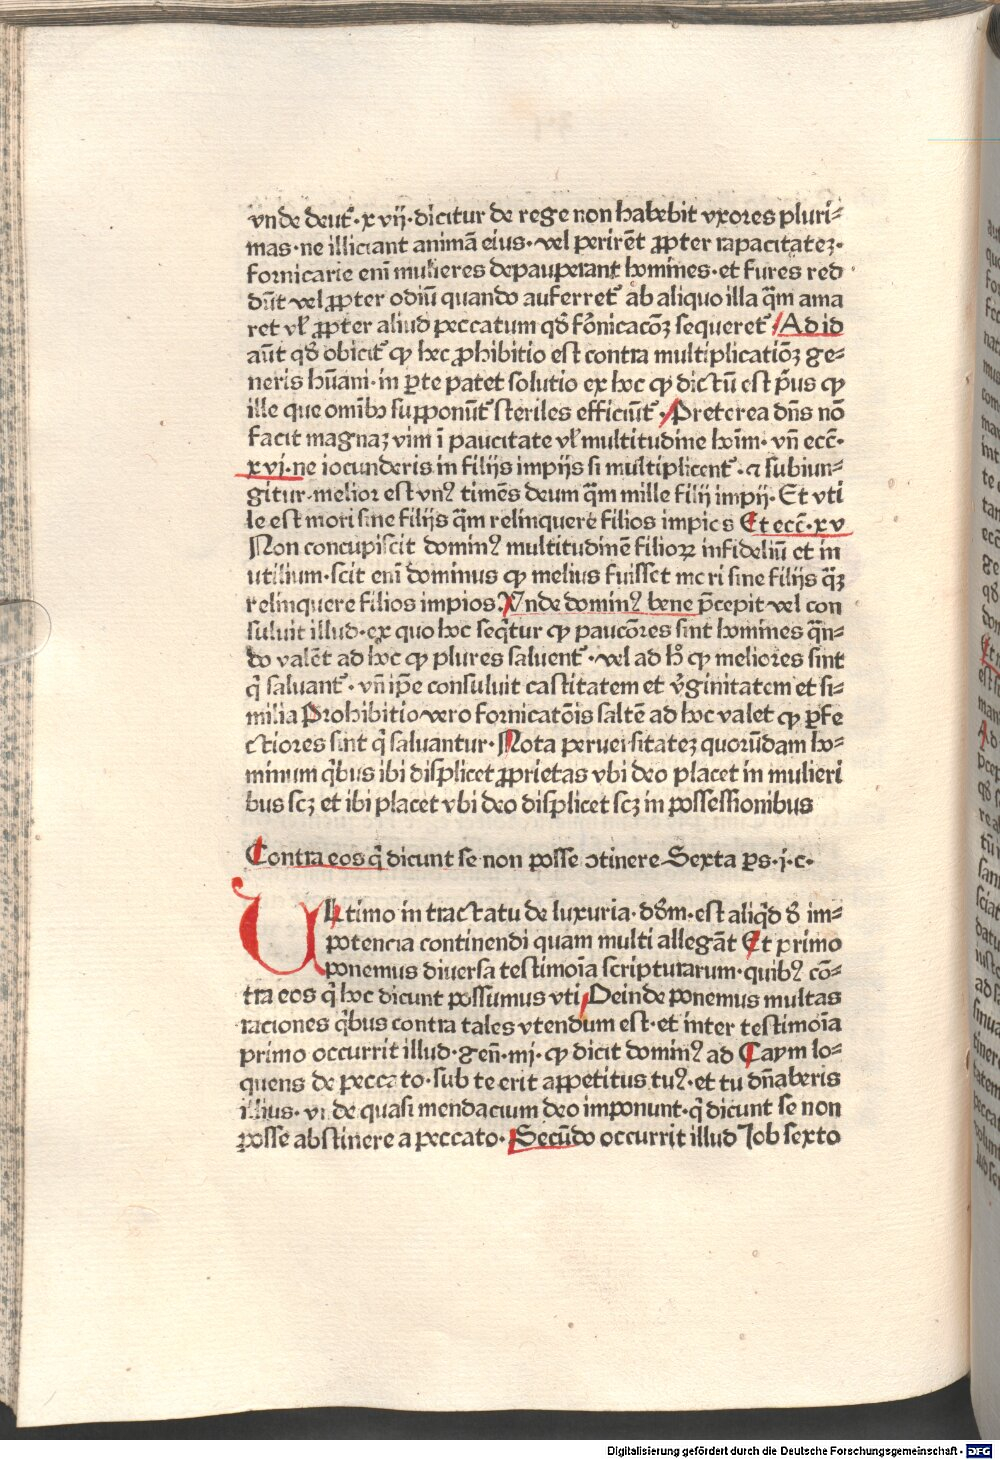 vnde deut᷒·xvij·dicitur de rege non habebit vxores pluri⸗
mas·ne illiciant animā eius·vel perirēt ꝓpter rapacitateꝫ·
fornicarie enī mulieres depauperant homines·et fures red
dūt vel ꝓpter odiū quando auferret᷒ ab aliquo illa q̄m ama
ret vl̓ ꝓpter aliud peccatum qd̓ fo̓nicacōꝫ sequeret᷒ Ad id
aūt qd̓ obicit᷒ ꝙ hec ꝓhibitio est contra multiplicatiōꝫ ge⸗
neris hūani·in ꝑte patet solutio ex hoc ꝙ dictū est p̄us ꝙ
ille que omībꝫ supponūt᷒ steriles efficiūt᷒·Preterea dn̄s nō
facit magnaꝫ vim ī paucitate vl̓ multitudine hoīm·vn̄ ecc̄·
xvi·ne iocunderis in filijs impijs si multiplicent᷒·⁊ subiun⸗
gitur·melior est vnꝰ timēs deum q̄m mille filij impij·Et vti
le est mori sine filijs q̄m relinquere filios impios Et ecc̄·xv
Non concupiscit dominꝰ multitudinē filioꝝ infideliū et in
utilium·scit enī dominus ꝙ melius fuisset mori sine filijs q̄ꝫ
relinquere filios impios·Vnde dominꝰ bene p̄cepit vel con
suluit illud·ex quo hoc seq̄tur ꝙ paucōres sint homines q̄n⸗
do valēt ad hoc ꝙ plures saluent᷒·vel ad h̓ ꝙ meliores sint
q̄ saluant᷒·vn̄ ip̄e consuluit castitatem et v̓ginitatem et si⸗
milia Prohibitio vero fornicatōis saltē ad hoc valet ꝙ ꝑfe
ctiores sint q̄ saluantur·Nota peruersitateꝫ quorūdam ho⸗
minum q̄bus ibi displicet ꝓprietas vbi deo placet in mulieri
bus scꝫ et ibi placet vbi deo displicet scꝫ in possessionibus
Contra eos q̄ dicunt se non posse ↄtinere Sexta ꝑs·j·c·
Ultimo in tractatu de luxuria·dd̓m·est aliq̄d d̓ im⸗
potencia continendi quam multi allegāt Et primo
ponemus diuersa testimoīa scripturarum·quibꝰ cō⸗
tra eos q̄ hoc dicunt possumus vti·Deinde ponemus multas
raciones q̄bus contra tales vtendum est·et inter testimoīa
primo occurrit illud·gen̄·iiij·ꝙ dicit dominꝰ ad Caym lo⸗
quens de peccato·sub te erit appetitus tuꝰ·et tu dn̄aberis
illius·vnde quasi mendacium deo imponunt·q̄ dicunt se non
posse abstinere a peccato·Secūdo occurrit illud Iob sexto
Digitalisierung gefördert durch die Deutsche Forschungsgemeinschaft - DFG